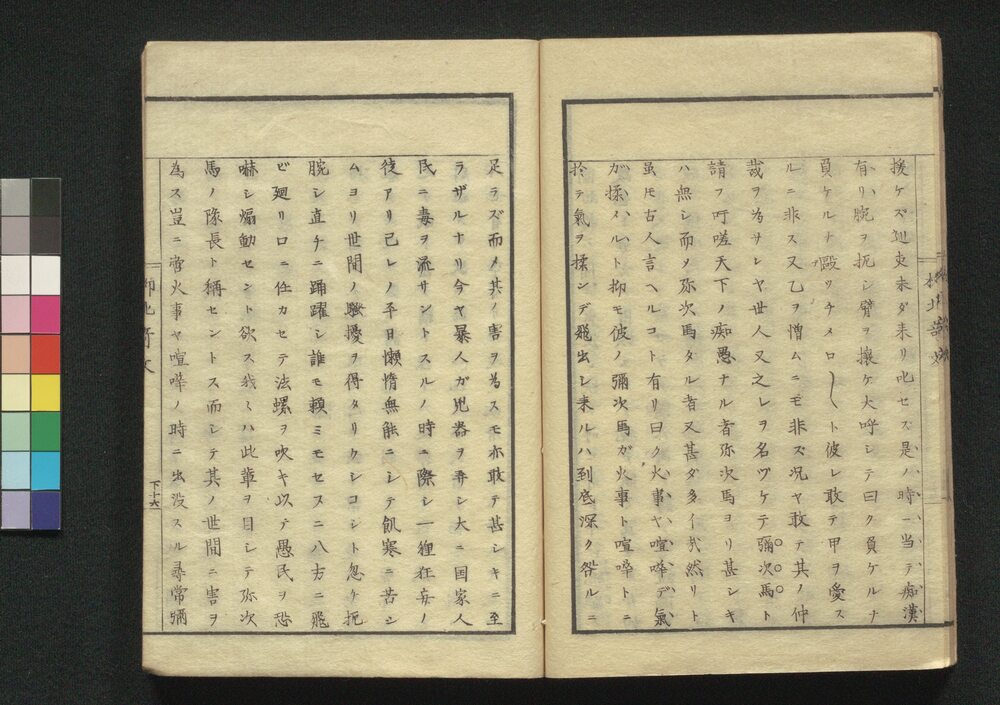 援ケズ巡吏未ダ来リ叱セズ是ノ時ニ当テ痴漢
有リ腕ヲ扼シ臂ヲ攘ケ大呼シテ曰ク負ケルナ
負ケルナ毆ツチメロ〱ト彼レ敢テ甲ヲ愛ス
ルニ非ス又乙ヲ憎ムニモ非ズ况ヤ敢テ其ノ仲
裁ヲ為サシヤ世人又之レヲ名ヅケテ彌次馬ト
請フ吁嗟天下ノ痴愚ナル者弥次馬ヨリ甚シキ
ハ無シ而メ弥次馬タル者又甚ダ多イ哉然リト
虽𪜈古人言ヘルコト有リ曰ク火事ヤ喧嘩デ氣
ガ揉メルト抑モ彼ノ彌次馬ガ火事ト喧嘩トニ
於テ氣ヲ揉ンデ飛出シ来ルハ到底深ク咎ルニ
柳北奇文
足ラズ而メ其ノ害ヲ為スモ亦敢テ甚シキニ至
ラザルナリ今ヤ暴人ガ兇器ヲ弄シ大ニ国家人
民ニ毒ヲ流サントスルノ時ニ際シ一種狂妄ノ
徒アリ己レノ平日懶惰無能ニシテ飢寒ニ苦シ
ムヨリ世間ノ騒擾ヲ得タリクシコシト忽ケ扼
腕シ直チニ踊躍シ誰モ頼ミモセスニ八方ニ飛
ビ廻リ口ニ任カセテ法螺ヲ吹キ以テ愚民ヲ恐
嚇シ煽動セント欲ス我々ハ此輩ヲ目シテ弥次
馬ノ隊長ト稱セントス而シテ其ノ世間ニ害ヲ
為ス豈ニ啻火事ヤ喧嘩ノ時ニ出没スル尋常彌
柳北奇文
下十六